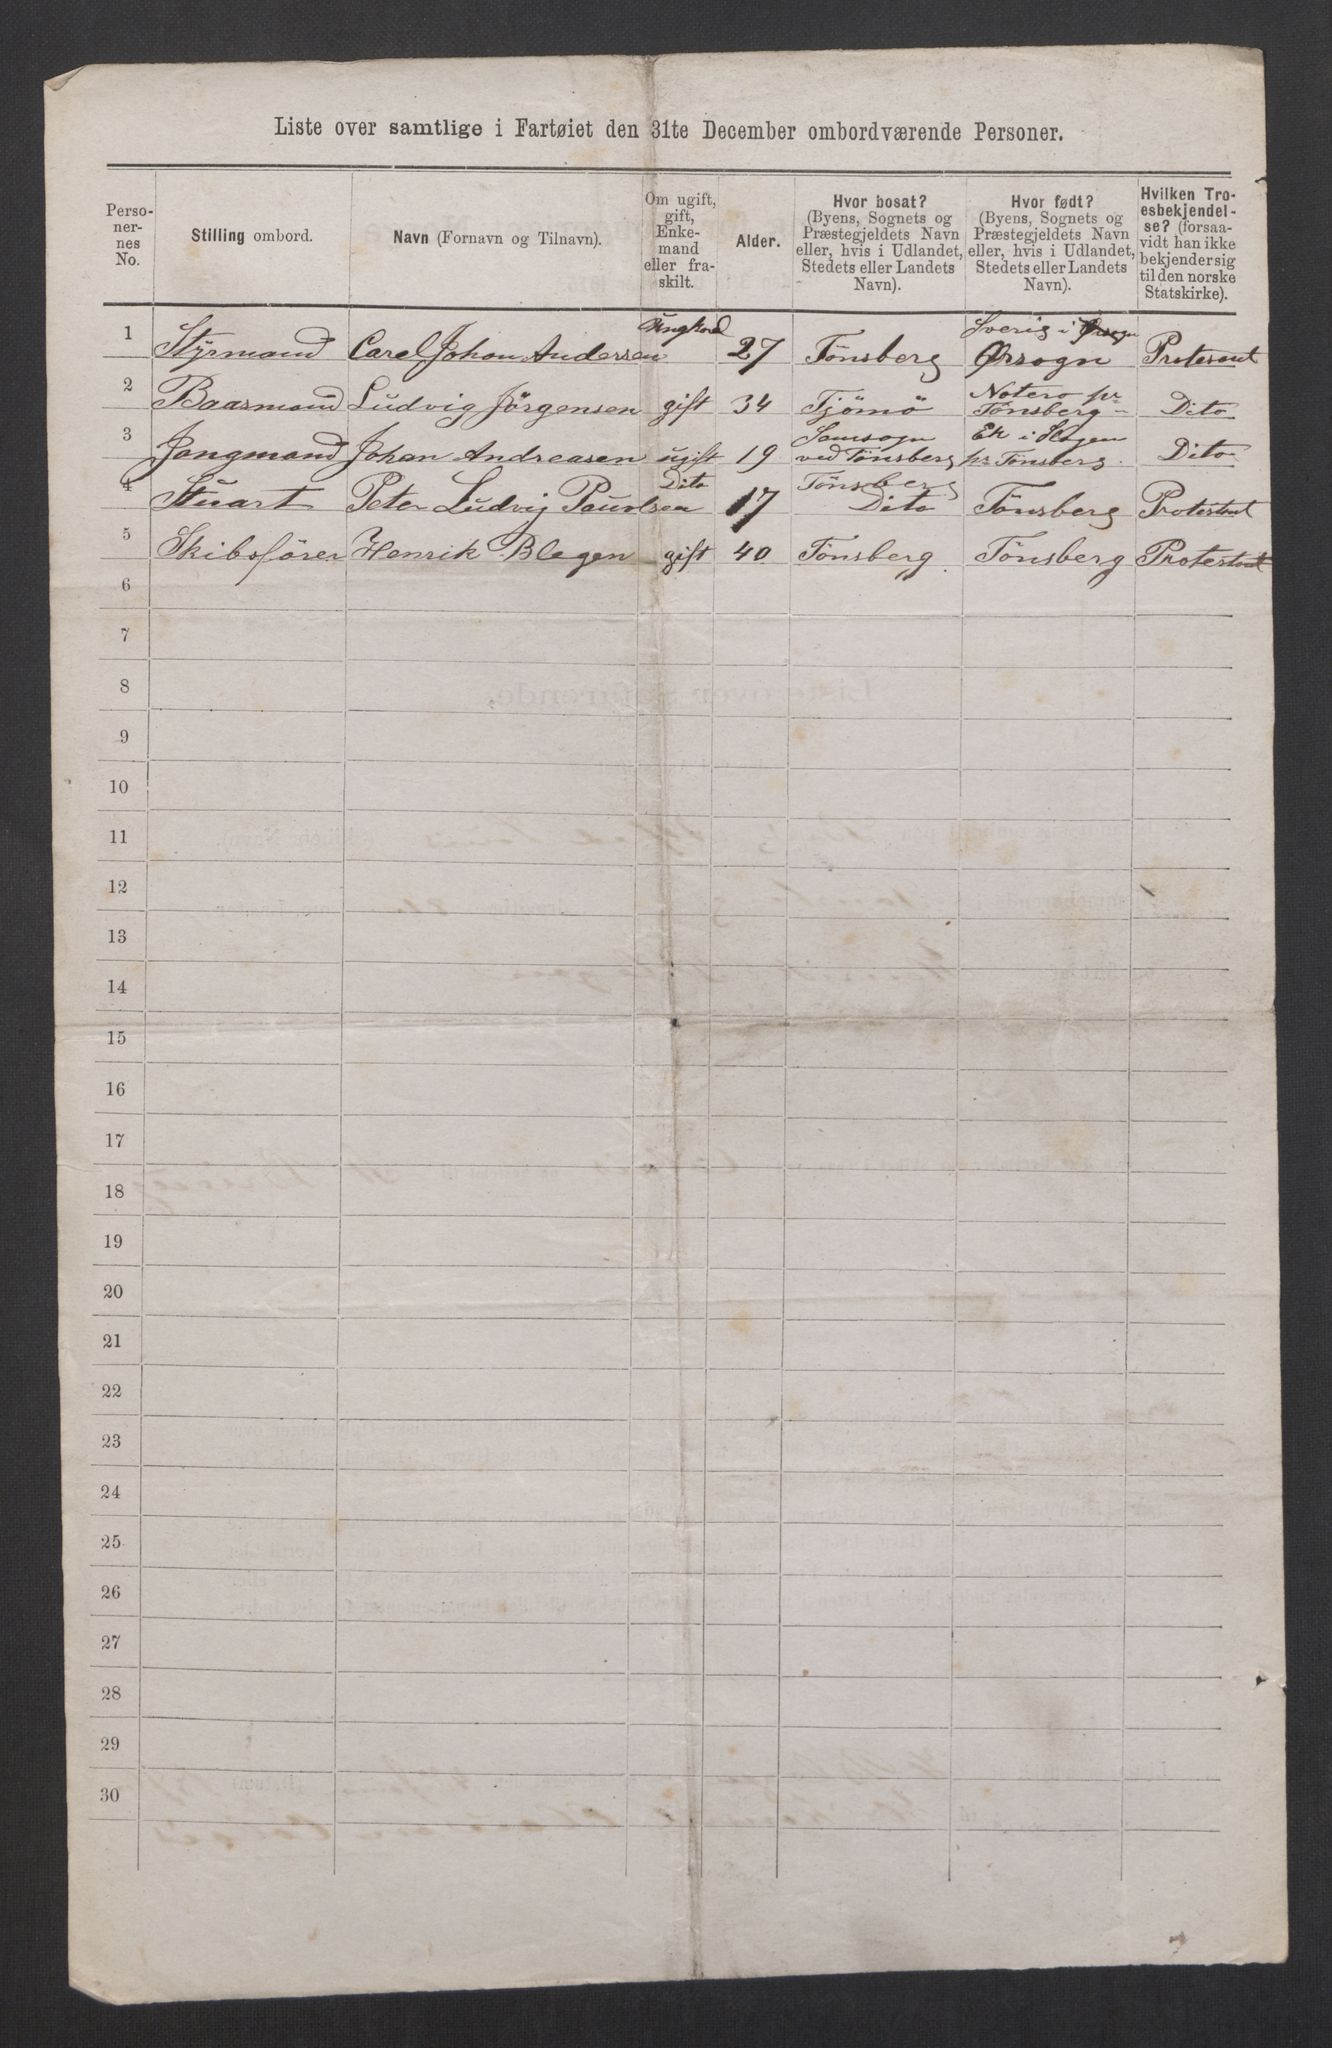 Liste over samtlige i Fartøiet den 31te December ombordværende Personer.
Perso-
ner-
nes
No.
Stilling ombord.
Navn (Fornavn og Tilnavn).
Om ugift,
gift,
Enke-
mand
eller fra-
skilt.
Alder.
Hvor bosat?
(Byens, Sognets og
Præstegjeldets Navn
eller, hvis i Udlandet,
Stedets eller Landets
Navn).
Hvor født?
(Byens, Sognets og
Præstegjeldets Navn
eller, hvis i Udlandet,
Stedets eller Landets
Navn).
Hvilken Tro-
esbekjendel-
se? (forsaa-
vidt han ikke
bekjender sig
til den norske
Statskirke).
1 Styrmand Carel Johan Andersen 27 Tönsberg Sverig i Ørsogn
Ørsogn Protesant
2 Baasmand Ludvig Jörgensen gift 34 Tjömö Notero pr
Tönsberg Dito
3 Jongmand Johan Andreasen ugift 19 Semsogn
ved Tönsberg Ek i Slagen
pr Tönsberg. Dito
4 Stuart Peter Ludvig Paulsen Dito 17 Tönsberg
Dito Tönsberg Protestant
5 Skibsförer Henrik Blegen gift 40 Tönsberg Tönsberg Protestant
6
7
8
9
10
11
12
13
14
15
16
17
18
19
20
21
22
23
24
25
26
27
28
29
30